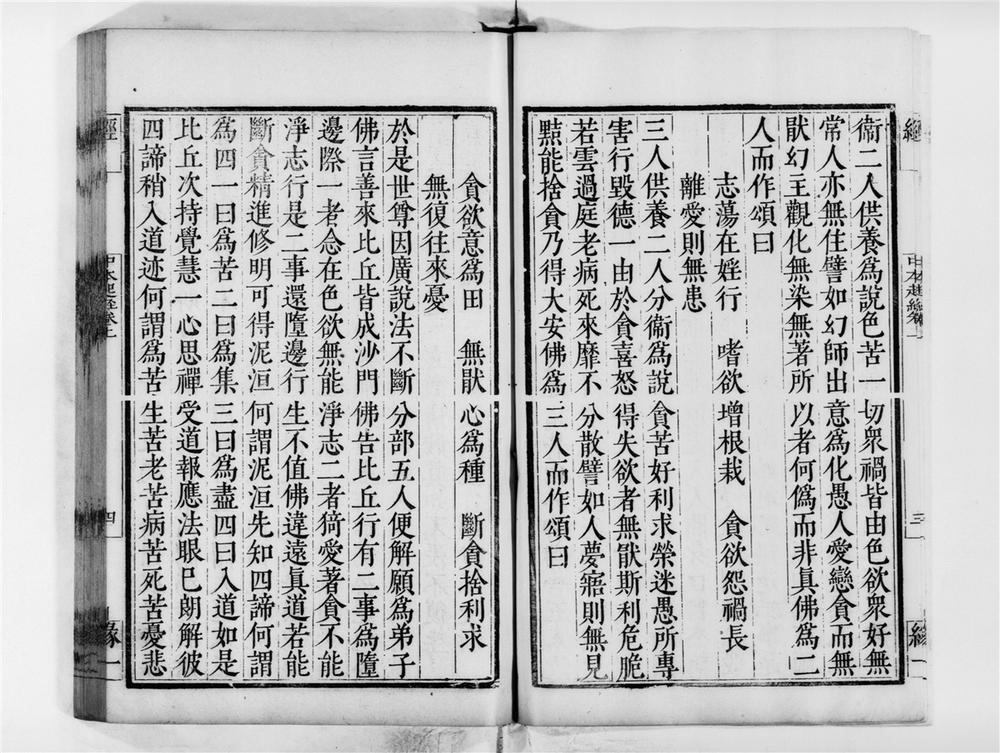 衞二人供養爲說色苦一切衆禍皆由色欲衆好無
常人亦無住譬如幻師出意爲化愚人愛戀貪而無
猒幻主觀化無染無著所以者何僞而非眞佛爲二
人而作頌曰
志蕩在婬行　嗜欲增根栽　貪欲怨禍長
離愛則無患
三人供養二人分衞爲說貪苦好利求榮迷愚所專
害行毀德一由於貪喜怒得失欲者無猒斯利危脆
若雲過庭老病死來靡不分散譬如人夢寤則無見
黠能捨貪乃得大安佛爲三人而作頌曰
經
三
緣一
貪欲意爲田　無猒心爲種　斷貪捨利求
無復往來憂
於是世尊因廣說法不斷分部五人便解願爲弟子
佛言善來比丘皆成沙門佛告比丘行有二事爲墮
邊際一者念在色欲無能淨志二者猗愛著貪不能
淨志行是二事還墮邊行生不值佛違遠眞道若能
斷貪精進修明可得泥洹何謂泥洹先知四諦何謂
爲四一曰爲苦二曰爲集三曰爲盡四曰入道如是
比丘次持覺慧一心思禪受道報應法眼已朗解彼
四諦稍入道迹何謂爲苦生苦老苦病苦死苦憂悲
經
中本起經卷上
四
緣一